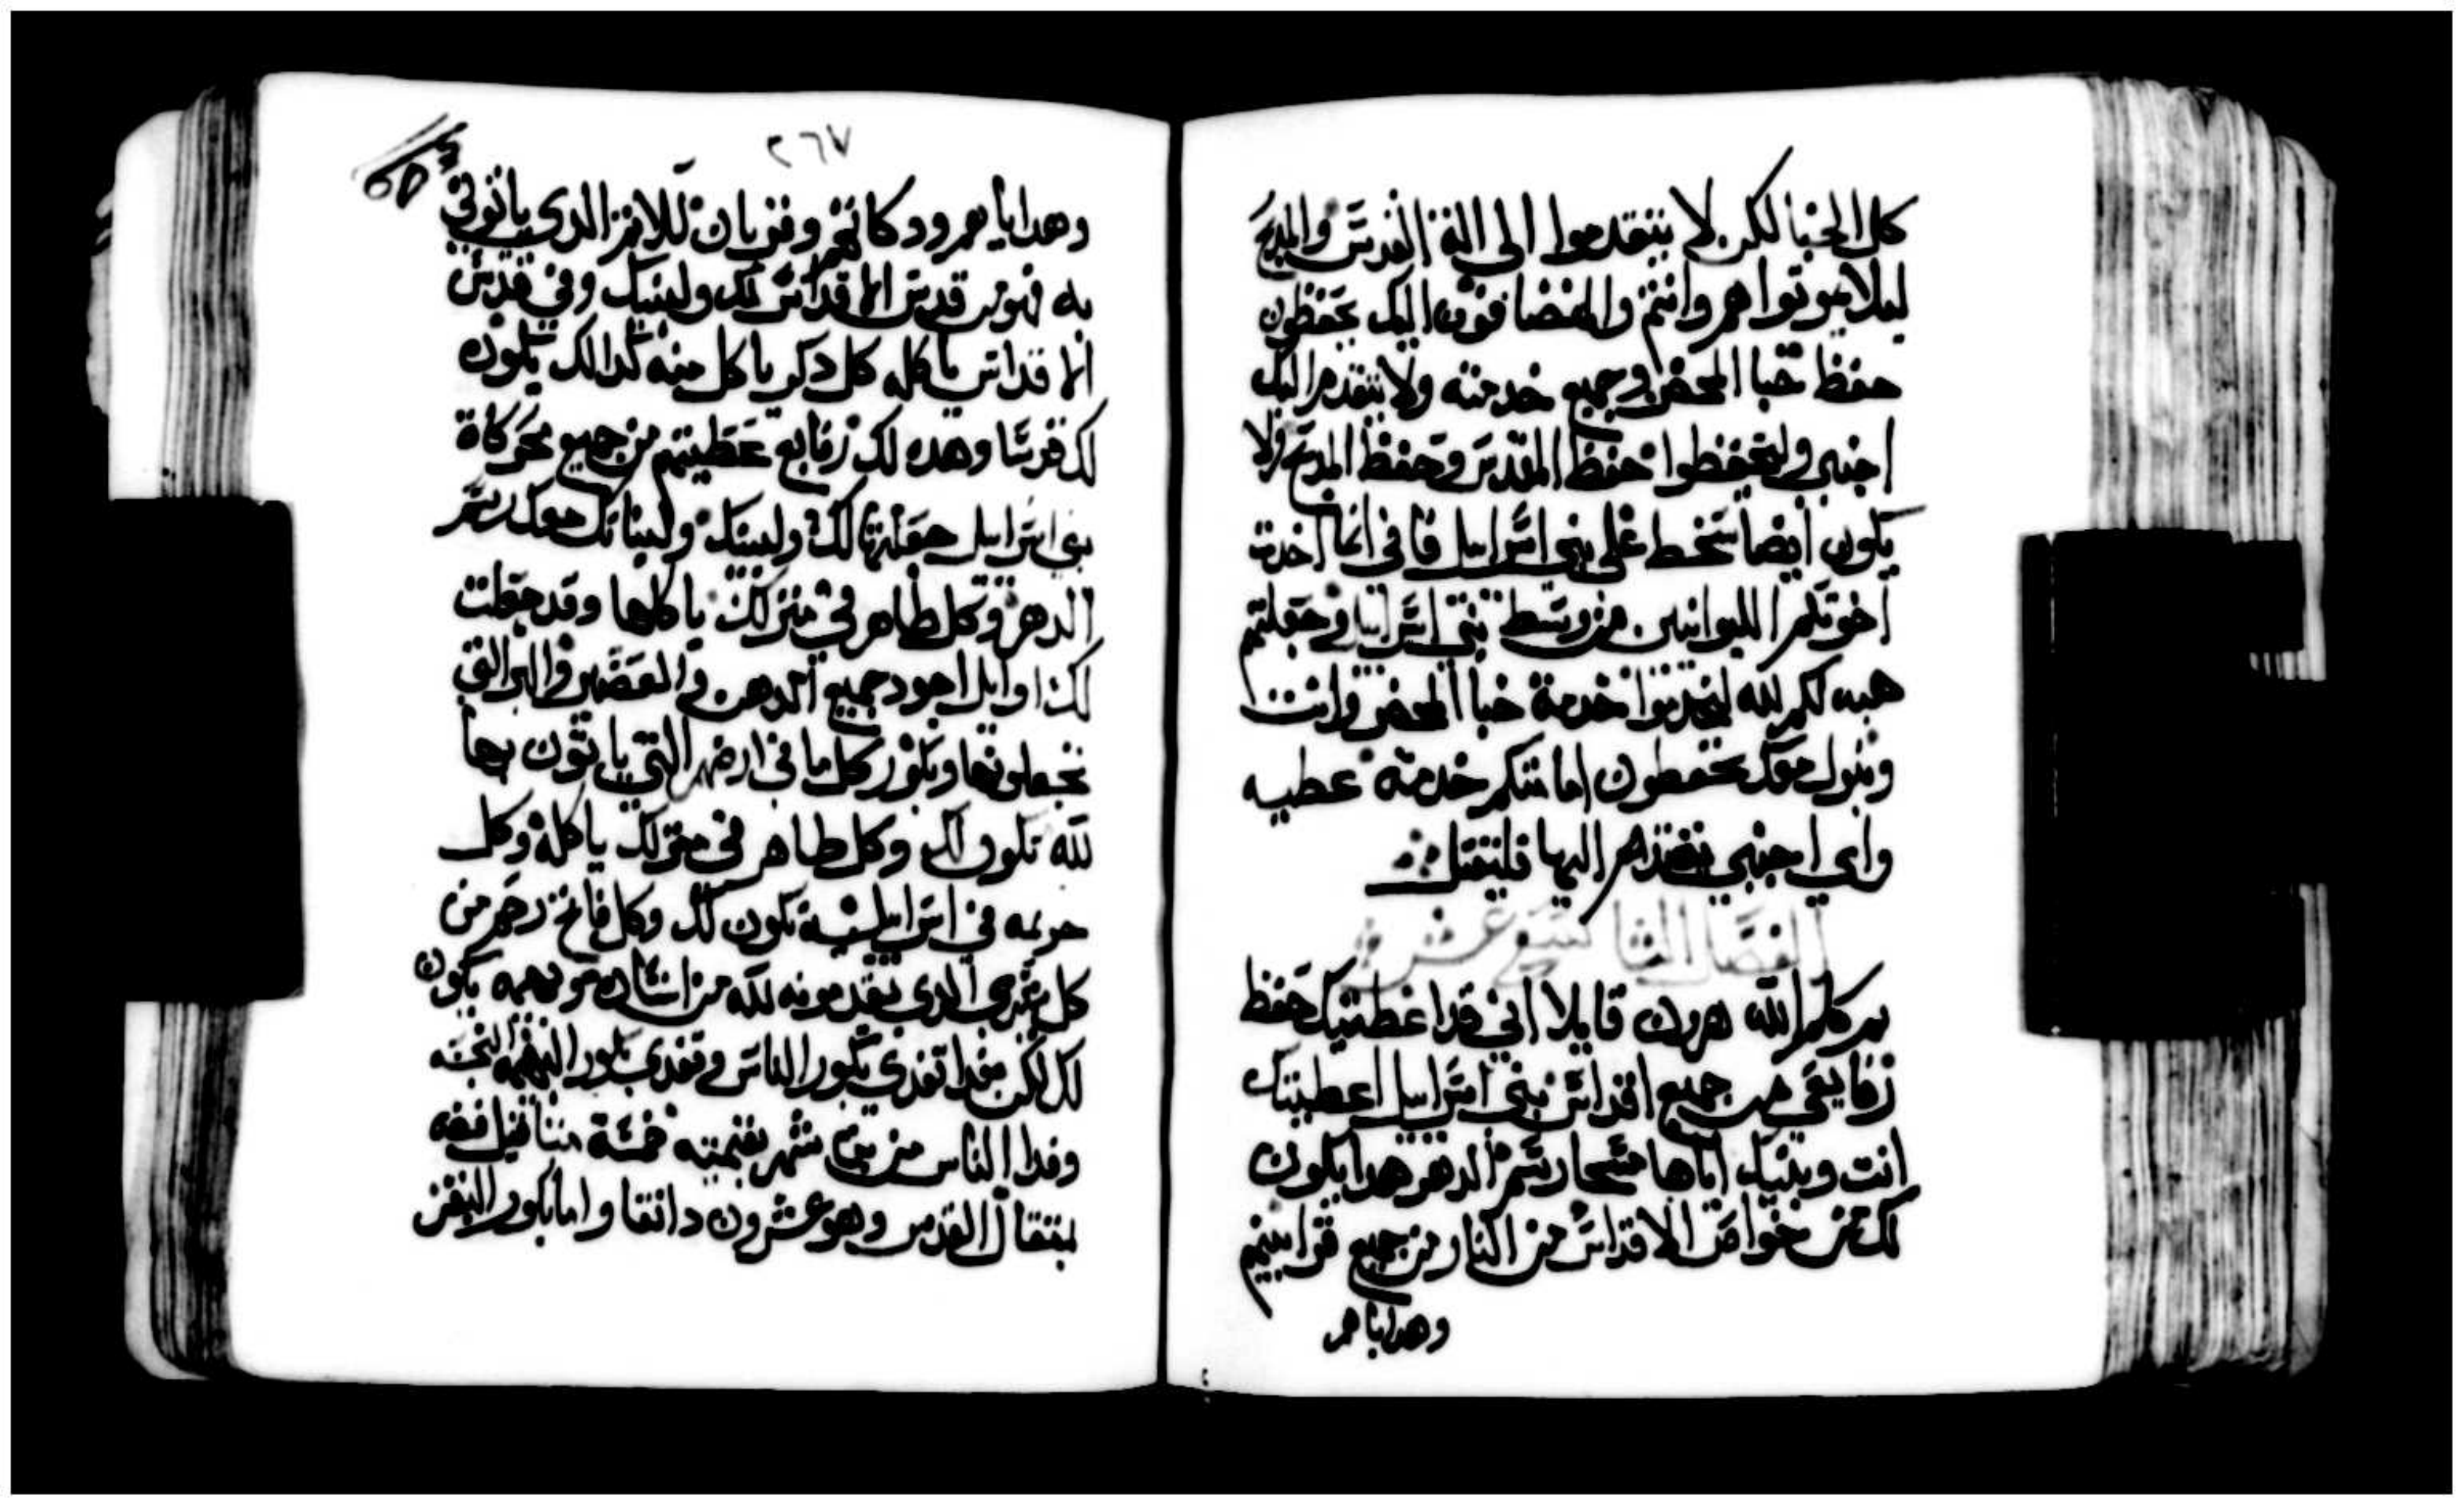 كل الخبا لكن لا يتقدموا الي الية القدس والمدبح
ليلا يموتوا هم وانتم والمنضافون اليك يحفظون
حفظ خبا المحضر وجميع خدمته ولا يتقدم اليك
اجنبي وليحفظوا حفظ القدس وحفظ المدبح ولا
يكون ايضا سخط علي بني اسراييل فاني انما اخدت
اخوتكم الليوانيين من وسط بني اسراييل وجعلتهم
هبه لكم لله ليخدموا خدمة خبا المحضر وانت
وبنوك معك تحفظون امامتكم خدمة عطيه
واي اجنبي يتقدم اليها فليقتل
الفصل التاسع عشر
تم كلم الله هرون قايلا اني قد اعطيتك حفظ
رفايعي من جميع اقداس بني اسراييل اعطيتك
انت وبنيك اياها مسحا رسم الدهر هدا يكون
لك من خواص الاقداس من النار من جميع قرابينهم
وهداياهم
٢٦٧
وهداياهم ودكاتهم وقربان للاتم الدي ياتوني
به فهو من قدس الاقداس لك ولبنيك وفي قدس
الاقداس ياكله كل دكر ياكل منه كدالك يكون
لك قدسا وهده لك رفايع عطيتهم من جميع محركاة
بني اسراييل جعلتها لك ولبنيك ولبناتك معك رسم
الدهر وكل طاهر في منزلك ياكلها وقد جعلت
لك اوايل اجود جميع الدهن والعصير والبر التي
تجعلونها وبكور كل ما في ارضهم التي ياتون بها
لله تكون لك وكل طاهر في منزلك ياكله وكل
حريمه في اسراييل تكون لك وكل فاتح رحم من
كل بشري الدي يقدمونه لله من انسان وبهيمه يكون
لك لكن فدا تفدي بكور الناس وتفدي بكور البهيمه النجسه
وفدا الناس من بين شهر بقيمته خمسة متاقيل فضه
بمتقال القدس وهو عشرون دانقا واما بكور البقر